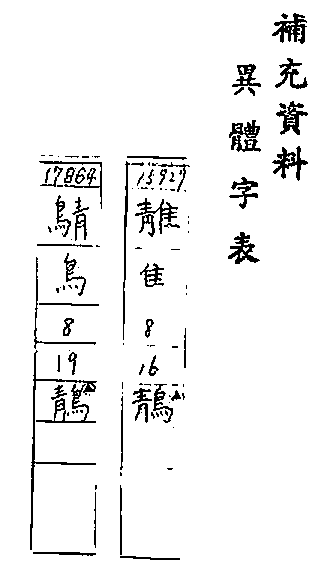 補充資料
異體字表
15929
䨝
隹
8
16
鶄
17864
鶄
鳥
8
19
鶄